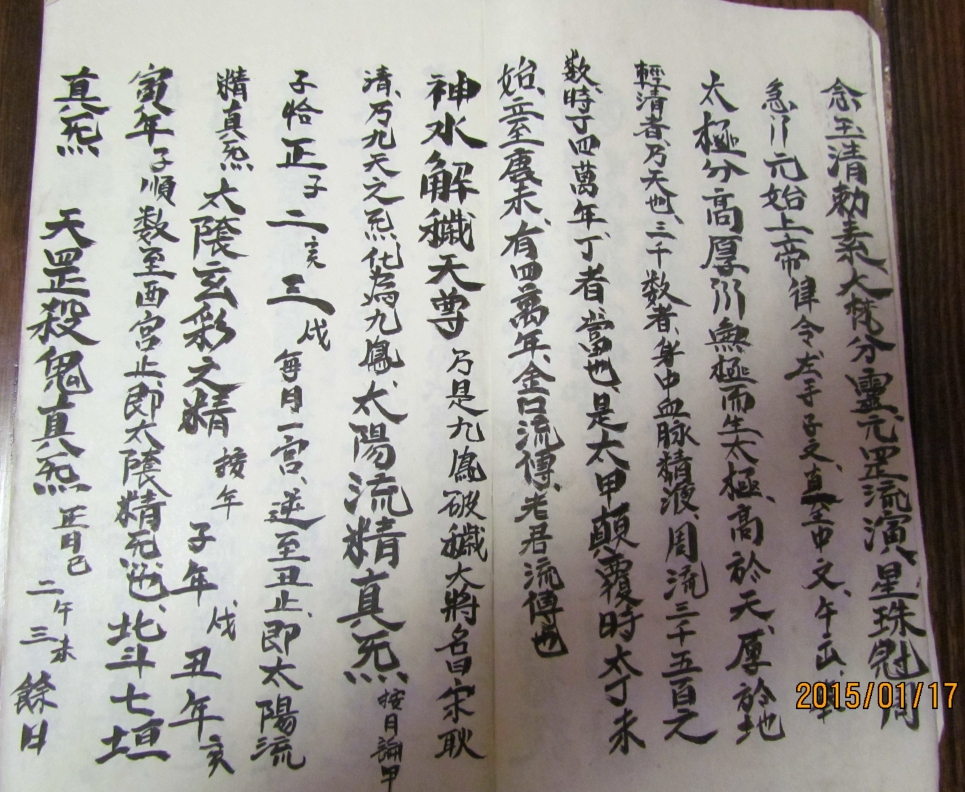 念玉清勅素大梵分靈元罡流演星珠魁
急元始上帝律令左手子文直至中文午
太極分高厚無極而生太極高於天厚於地
輕清者乃天也三千数者身中血脉精液周流三千五百之
数時丁四萬年丁者當也是太甲顛覆時太丁未
始立至唐末有四萬年金口流傳老君流傳也
神水解穢天尊乃是九鳳破穢大將名曰宋耿
清乃九天之炁化為九鳳太陽流精真炁按月論甲
子恰正子二亥三戌每月一宮逆至丑止即太陽流
精真炁太陰玄彩之精按年子年戌丑年亥
寅年子順数至酉宮止即太陰精炁也北斗七垣
真炁 天罡殺鬼真炁正月巳二午三未餘日
2015/01/17